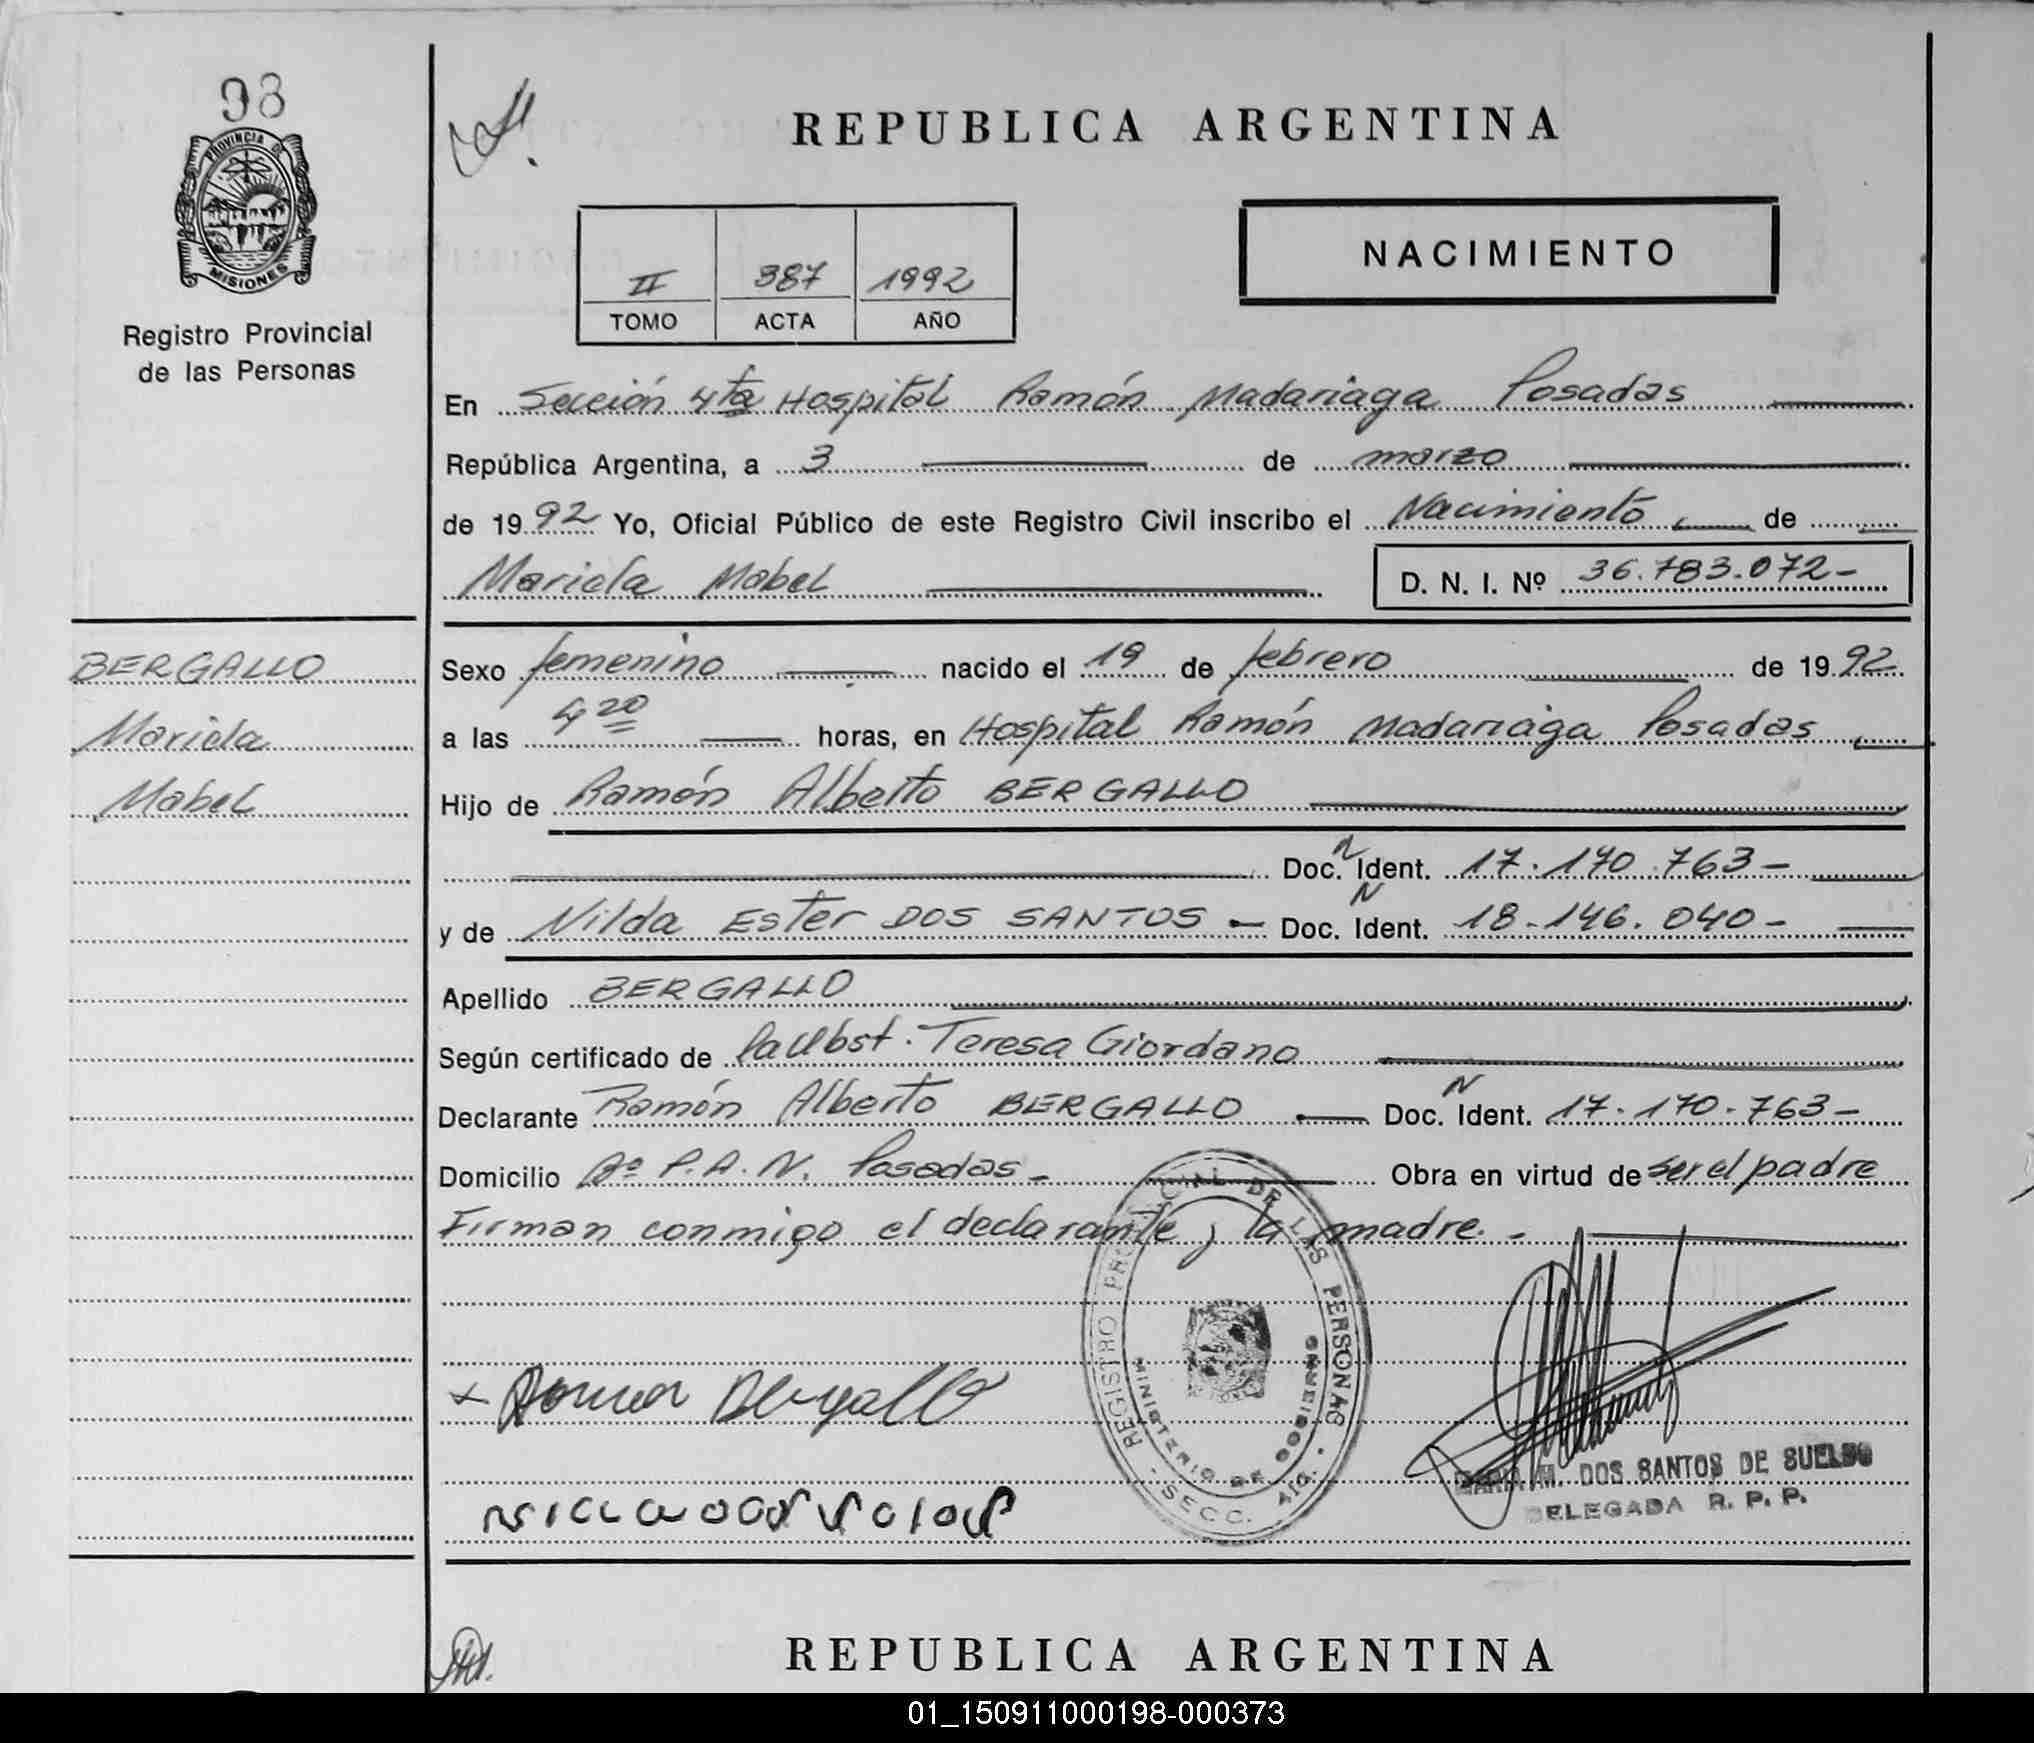 98
PROVINCIA DE
MISIONES
Registro Provincial
de las Personas
REPUBLICA ARGENTINA
II 387 1992
TOMO ACTA AÑO
NACIMIENTO
En Sección 4ta Hospital Ramón Madariaga Posadas
República Argentina, a 3 de marzo
de 1992 Yo, Oficial Público de este Registro Civil inscribo el Nacimiento de
Mariela Mabel D. N. I. Nº 36.783.072-
BERGALLO
Mariela
Mabel
Sexo femenino nacido el 19 de febrero de 1992
a las 4 20 horas, en Hospital Ramón Madariaga Posadas
Hijo de Ramón Alberto BERGALLO
Doc. N Ident. 17.170.763-
y de Nilda Ester DOS SANTOS - Doc. N Ident. 18.146.040-
Apellido BERGALLO
Según certificado de Teresa Giordano
Declarante Ramón Alberto BERGALLO Doc. N Ident. 17.170.763-
Domicilio Bº P.A.N. Posadas- Obra en virtud de ser el padre
Firman conmigo el declarante y la madre.-
REGISTRO PROVINCIAL DE LAS PERSONAS
MINISTERIO DE GOBIERNO
SECC. 4ta.
Bergallo
M. DOS SANTOS DE SUELDO
DELEGADA R. P. P.
REPUBLICA ARGENTINA
01_150911000198-000373